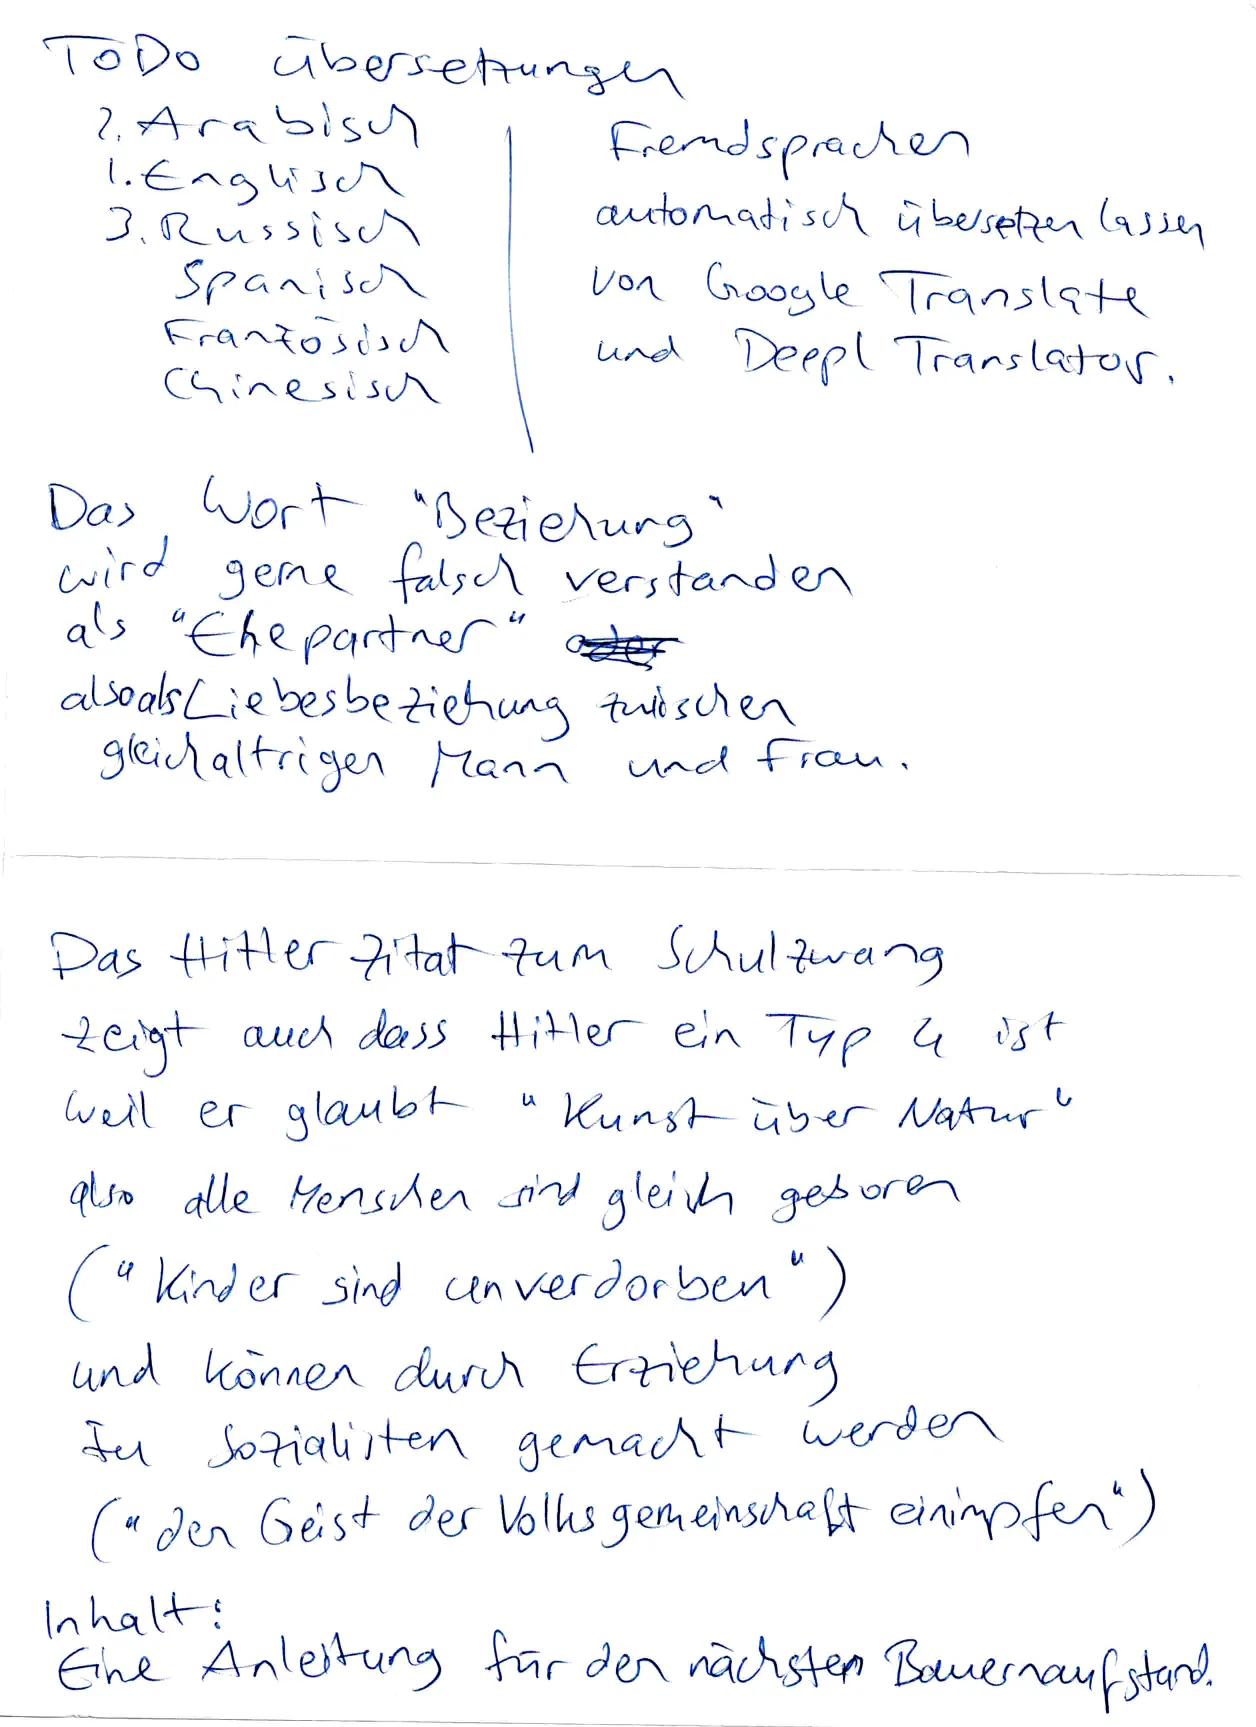 ToDo Übersetzungen
2. Arabisch
1. Englisch
3. Russisch
Spanisch
Französisch
Chinesisch
Fremdsprachen
automatisch übersetzen lassen
von Google Translate
und Deepl Translator.
Das Wort "Beziehung"
wird gerne falsch verstanden
als "Ehepartner" oder
also als Liebesbeziehung zwischen
gleichaltrigen Mann und Frau.
Das Hitler Zitat zum Schulzwang
zeigt auch dass Hitler ein Typ 4 ist
weil er glaubt "Kunst über Natur"
also alle Menschen sind gleich geboren
("Kinder sind unverdorben")
und können durch Erziehung
zu Sozialisten gemacht werden
("den Geist der Volksgemeinschaft einimpfen")
Inhalt:
Eine Anleitung für den nächsten Bauernaufstand.